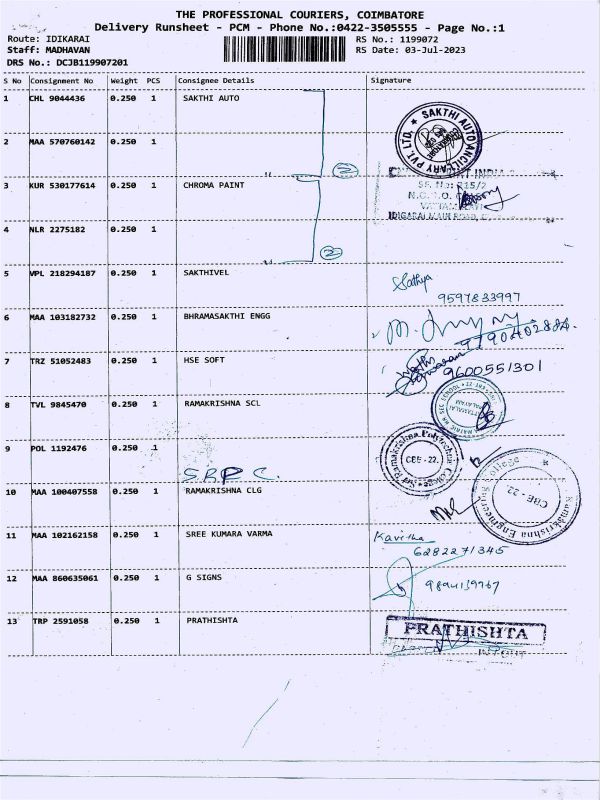 THE PROFESSIONAL COURIERS, COIMBATORE
Delivery Runsheet - PCM - Phone No.:0422-3505555 - Page No.:1
Route: IDIKARAI RS No.: 1199072
Staff: MADHAVAN RS Date: 03-Jul-2023
DRS No.: DCJB119907201
S No Consignment No Weight PCS Consignee Details Signature
1 CHL 9044436 0.250 1 SAKTHI AUTO
SAKTHI AUTO ANCILLARY PVT. LTD.
2 MAA 570760142 0.250 1
2
3 KUR 530177614 0.250 1 CHROMA PAINT
SF. No: 215/2
IDIGARAI MAIN ROAD
4 NLR 2275182 0.250 1
2
5 VPL 218294187 0.250 1 SAKTHIVEL Sathya
9597833997
6 MAA 103182732 0.250 1 BHRAMASAKTHI ENGG
7 TRZ 51052483 0.250 1 HSE SOFT 9600551301
8 TVL 9845470 0.250 1 RAMAKRISHNA SCL
9 POL 1192476 0.250 1
S.R.P.C.
Sri Ramakrishna Polytechnic College
CBE - 22.
10 MAA 100407558 0.250 1 RAMAKRISHNA CLG
Ramakrishna Engineering College
CBE - 22.
11 MAA 102162158 0.250 1 SREE KUMARA VARMA Kavitha
6282271345
12 MAA 860635061 0.250 1 G SIGNS
13 TRP 2591058 0.250 1 PRATHISHTA
PRATHISHTA